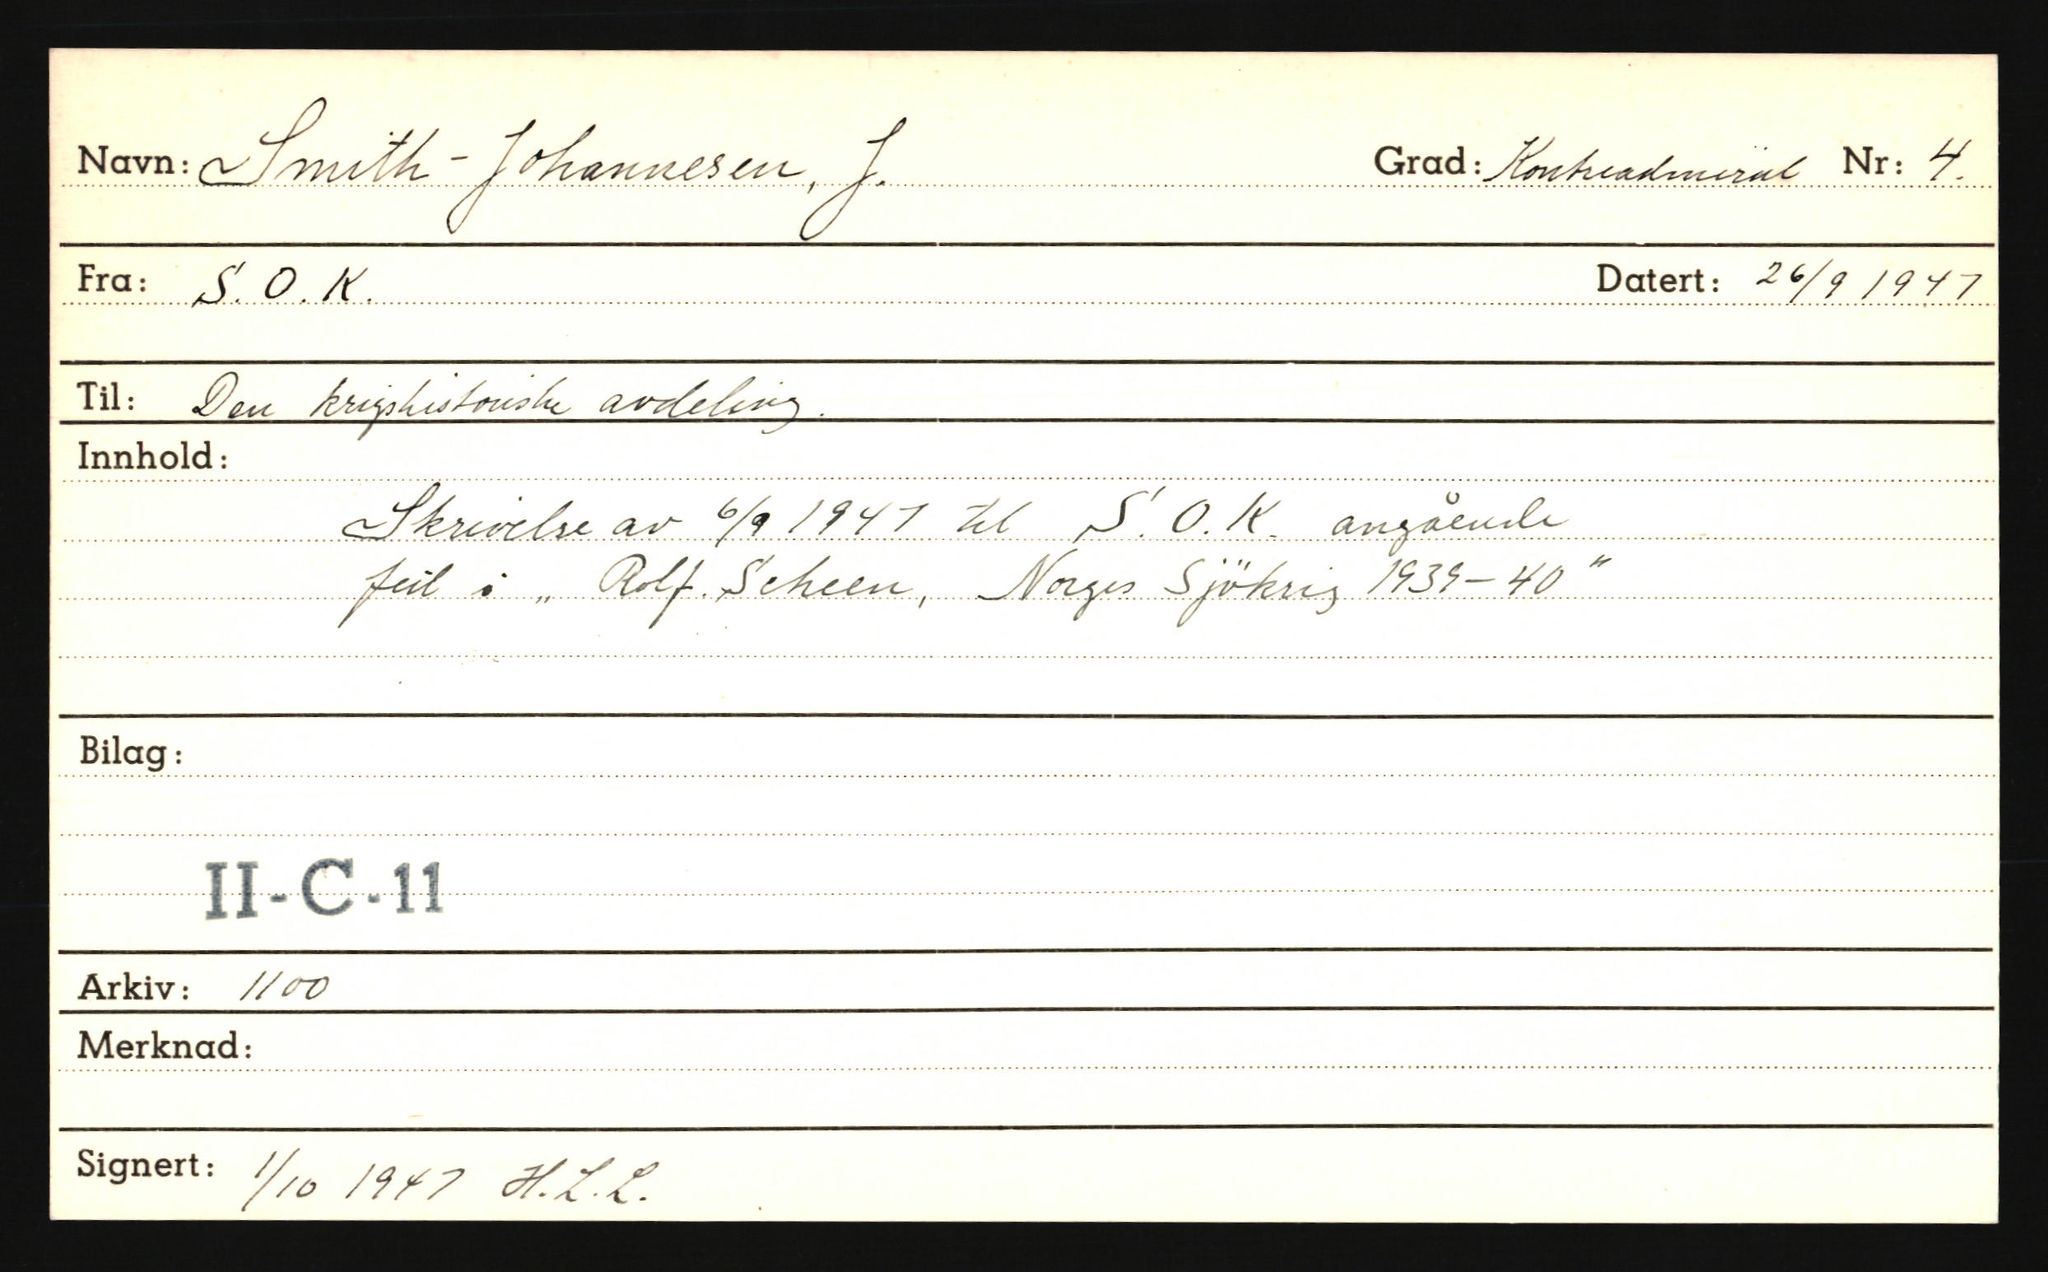 Navn: Smith-Johannesen, J. Grad: Kontreadmiral Nr: 4.
Fra: S.O.K. Datert: 26/9 1947
Til: Den krigshistoriske avdeling.
Innhold:
Skrivelse av 6/9 1947 til S.O.K. angående
feil i „ Rolf Scheen, Norges Sjökrig 1939-40"
Bilag:
II-C-11
Arkiv: 1100
Merknad:
Signert: 1/10 1947 H.L.L.